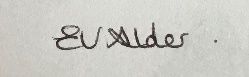 EV Alder.